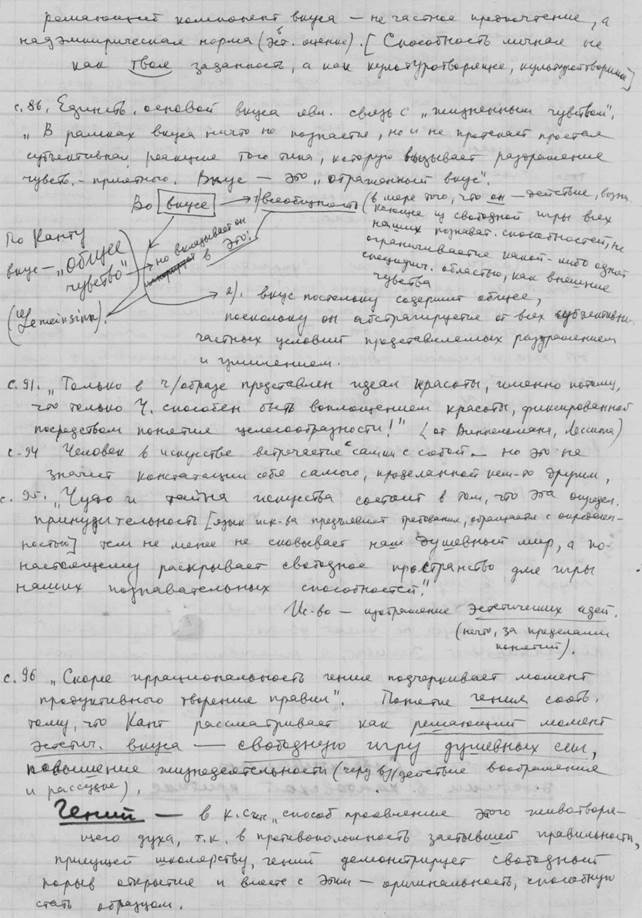 решающий компонент вкуса — не частное предпочтение, а
надэмпирическая норма (эст. оценке). [Способность личная не
как твоя заданность, а как культуротворящее,
с.86. Единств. основой вкуса явл. связь с „жизненным чувством".
„В рамках вкуса ничто не познается, но и не протекает простая
субъективная реакция того типа, которую вызывает раздражение
чувств. - приятного. Вкус — это „отраженный вкус".
Во вкусе → 1) всеобщность (в мере того, что он — действие, возни
кающее из свободной игры всех
наших познават. способностей, не
ограничивается какой-либо одной
специфич. областью, как внешние
чувства
По Канту
вкус — „общее
чувство"
(Gemeinsinn).
но вкладывает он
в это:
2). вкус постольку содержит общее,
поскольку он абстрагируется от всех субъективн.
частных условий представляемых раздражением
и умилением.
с.91. „Только в ч/образе представлен идеал красоты, именно потому,
что только ч. способен быть воплощением красоты, фиксированной
посредством понятия целесообразности!" (от Винкельмана, Лессинга)
с.94 Человек в искусстве встречается с самим с собой — но это не
значит констатации себя самого, проделанной кем-то другим,
с.95. „Чудо и тайна искусства состоит в том, что эта определ.
принудительность [язык иск-ва предъявляет требования, обращается с определен-
ностью] тем не менее не сковывает наш душевный мир, а по-
настоящему раскрывает свободное пространство для игры
наших познавательных способностей."
Ис-во — изображение эстетических идей.
(нечто, за пределами
понятий).
с.96 „Скорее иррациональность гения подчеркивает момент
продуктивного творения правил". Понятие гения соотв.
тому, что Кант рассматривает как решающий момент
эстетич. вкуса — свободную игру душевных сил,
повышение жизнедеятельности (через вз/действие воображения
и рассудке),
Гений — в к. „способ проявления этого животворя-
щего духа, т.к. в противоположность застывшей правильности,
присущей школярству, гений демонстрирует свободный
порыв открытия и вместе с этим — оригинальность, способную
стать образцом.